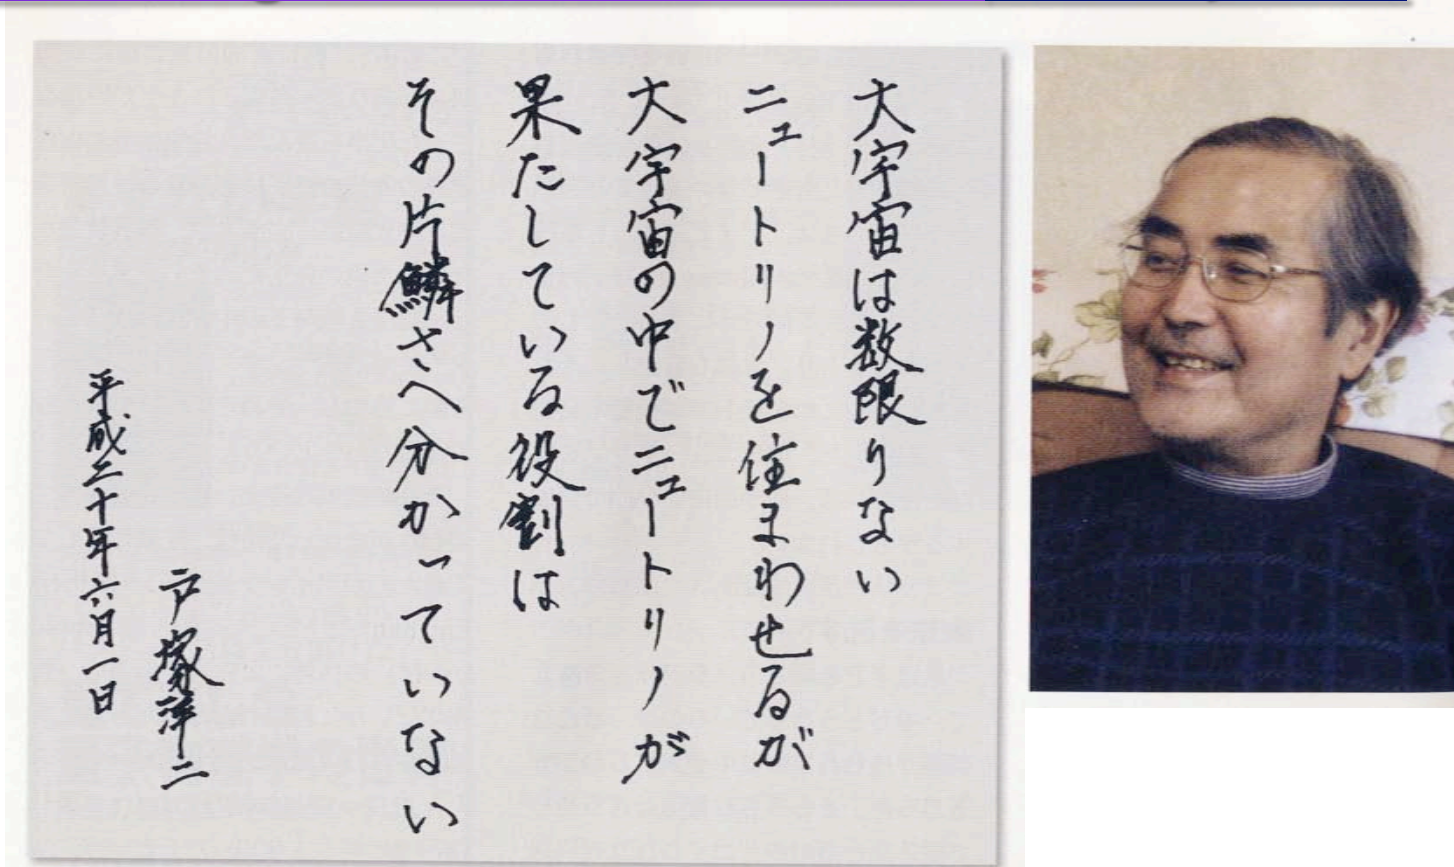 大宇宙は数限りない
ニュートリノを住まわせるが
大宇宙の中でニュートリノが
果たしている役割は
その片鱗さへ分かっていない
戸塚洋二
平成二十年六月一日